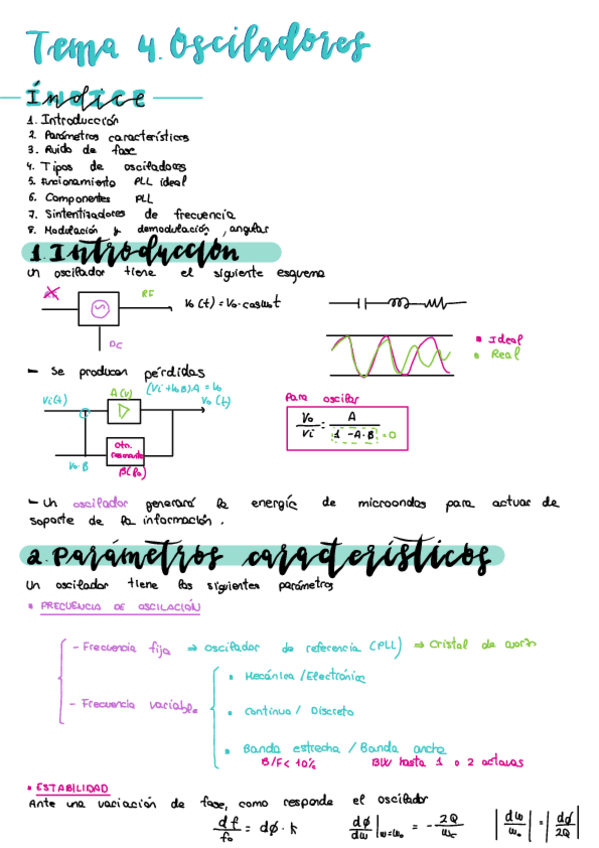 Tema 4. Osciladores
Índice
1. Introducción
2. Parámetros característicos
3. Ruido de fase
4. Tipos de osciladores
5. Funcionamiento PLL ideal
6. Componentes PLL
7. Sintentizadores de frecuencia
8. Modulación y demodulación, angular
1. Introducción
Un oscilador tiene el siguiente esquema
RF
V₀(t) = V₀·cosω₀t
DC
• Ideal
• Real
- Se producen pérdidas
A(v) (Vi+V₀B)A = V₀
Vi(t) V₀(t)
Cto. resonante
V₀·B β(f₀)
Para oscilar
V₀/Vi = A/(1-A·B) = 0
- Un oscilador generará la energía de microondas para actuar de
soporte de la información.
2. Parámetros característicos
Un oscilador tiene los siguientes parámetros
• FRECUENCIA DE OSCILACIÓN
- Frecuencia fija ⇒ oscilador de referencia (PLL) ⇒ Cristal de
- Frecuencia variable
• Mecánica / Electrónica
• Continua / Discreta
• Banda estrecha / Banda ancha
B/F < 10% BW hasta 1 o 2 octavas
• ESTABILIDAD
Ante una variación de fase, como responde el oscilador
df/f₀ = dϕ·k dϕ/dω|ω=ω₀ = -2Q/ω₀ |dω/ω₀| = |dϕ/2Q|